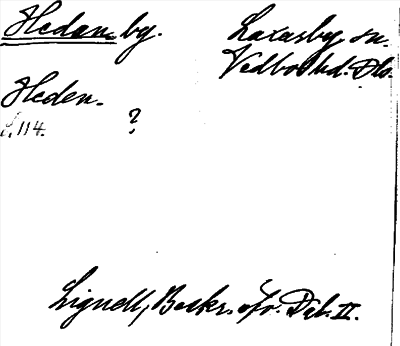 Hedan. by.
Laxarby sn.
Vedbo hd. Dls.
Heden.
s. 114.
?
Lignell, Beskr. öfr. Dal. II.